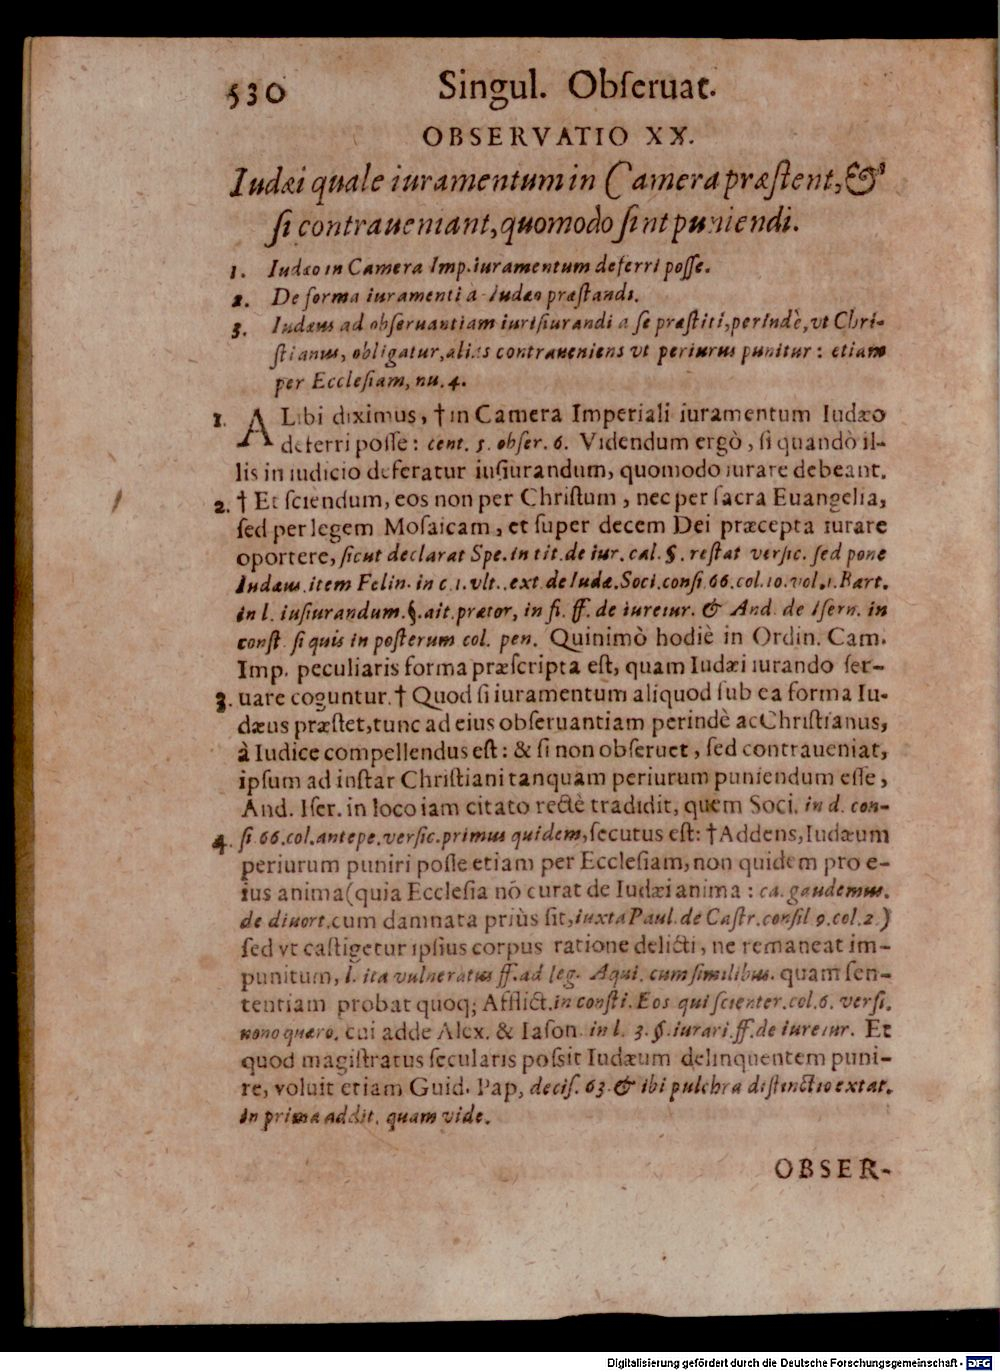 530 Singul. Obſeruat.
OBSERVATIO XX.
Iudæi quale iuramentum in Camera præſtent, &
ſi contraueniant, quomodo ſint puniendi.
1. Iudæo in Camera Imp. iuramentum deferri poſſe.
2. De forma iuramenti a Iudæo præſtandi.
3. Iudæus ad obſeruantiam iuriſiurandi a ſe præſtiti, perindè, vt Chri-
ſtianus, obligatur, alias contraueniens vt periurus punitur: etiam
per Eccleſiam, nu. 4.
1. ALibi diximus, † in Camera Imperiali iuramentum Iudæo
deferri poſſe: cent. 5. obſer. 6. Videndum ergò, ſi quandò il-
lis in iudicio deferatur iuſiurandum, quomodo iurare debeant.
2. † Et ſciendum, eos non per Chriſtum, nec per ſacra Euangelia,
ſed per legem Moſaicam, et ſuper decem Dei præcepta iurare
oportere, ſicut declarat Spe. in tit. de iur. cal. §. reſtat verſic. ſed pone
Iudæus. item Felin. in c. 1. vlt. . ext. de Iudæ. Soci. conſi. 66. col. 10. vol. 1. Bart.
in l. iuſiurandum. §. ait. prætor, in fi. ff. de iureiur. & And. de Iſern. in
conſt. ſi quis in poſterum col. pen. Quinimò hodiè in Ordin. Cam.
Imp. peculiaris forma præſcripta eſt, quam Iudæi iurando ſer-
3. uare coguntur. † Quod ſi iuramentum aliquod ſub ea forma Iu-
dæus præſtet, tunc ad eius obſeruantiam perindè ac Chriſtianus,
à Iudice compellendus eſt: & ſi non obſeruet, ſed contraueniat,
ipſum ad inſtar Chriſtiani tanquam periurum puniendum eſſe,
And. Iſer. in loco iam citato rectè tradidit, quem Soci. in d. con-
4. ſi 66. col. antepe. verſic. primus quidem, ſecutus eſt: † Addens, Iudæum
periurum puniri poſſe etiam per Eccleſiam, non quidem pro e-
ius anima (quia Eccleſia nō curat de Iudæi anima: ca. gaudemus.
de diuort. cum damnata priùs ſit, iuxta Paul. de Caſtr. conſil 9. col. 2.)
ſed vt caſtigetur ipſius corpus ratione delicti, ne remaneat im-
punitum, l. ita vulneratus ff. ad leg. Aqui. cum ſimilibus. quam ſen-
tentiam probat quoq; Afflict. in conſti. Eos qui ſcienter. col. 6. verſi.
nono quæro. cui adde Alex. & Iaſon. in l. 3. §. iurari. ff. de iureiur. Et
quod magiſtratus ſecularis poſſit Iudæum delinquentem puni-
re, voluit etiam Guid. Pap, deciſ. 63. & ibi pulchra diſtinctio extat.
in prima addit. quam vide.
OBSER-
Digitalisierung gefördert durch die Deutsche Forschungsgemeinschaft - DFG